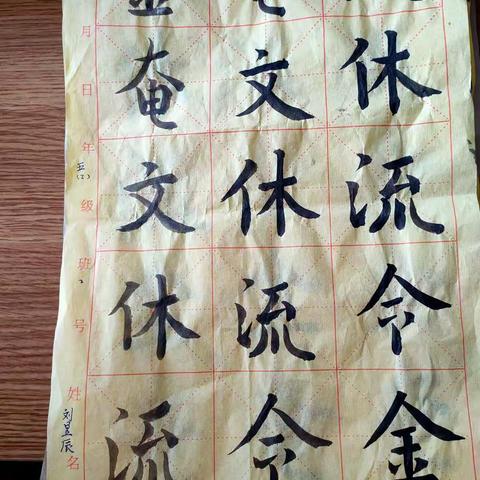 奄文休
文休流
休流令
流令金
月日年级班号姓名
五(2)
刘昱辰